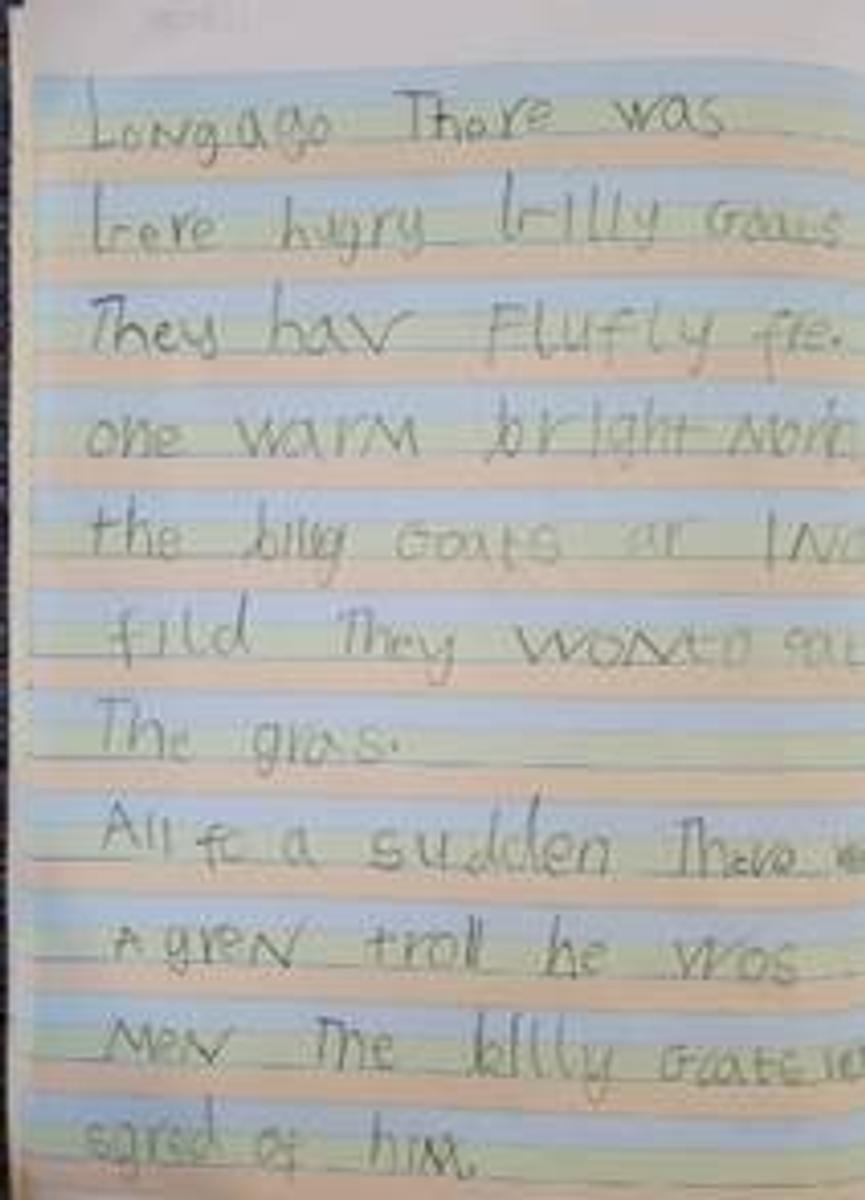 Long ago There was
hugry billy Goats
They hav Flufly fre.
one warm bright
the billy Goats ar
fild They wont to
The gras.
All fo a sudden There
A greN troll he wos
MeN The billy Goats
sgred of him